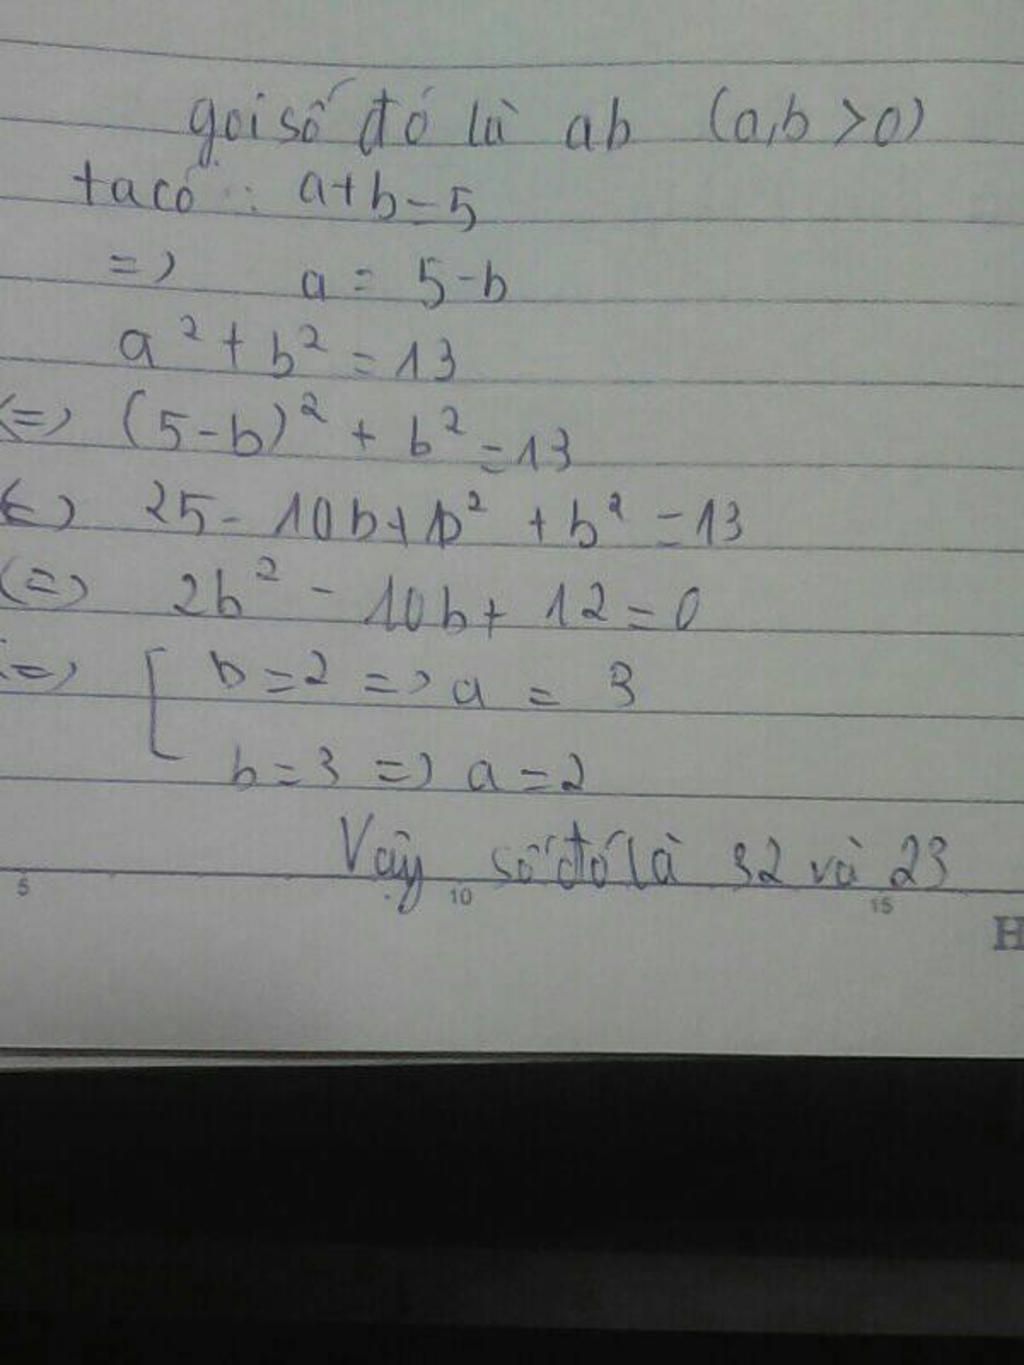 gọi số đó là ab (a,b > 0)
ta có : a+b=5
=> a = 5-b
a² + b² = 13
<=> (5-b)² + b² = 13
<=> 25 - 10b + b² + b² = 13
<=> 2b² - 10b + 12 = 0
<=> [ b=2 => a = 3
b=3 => a=2
Vậy số đó là 32 và 23
5 10 15
H